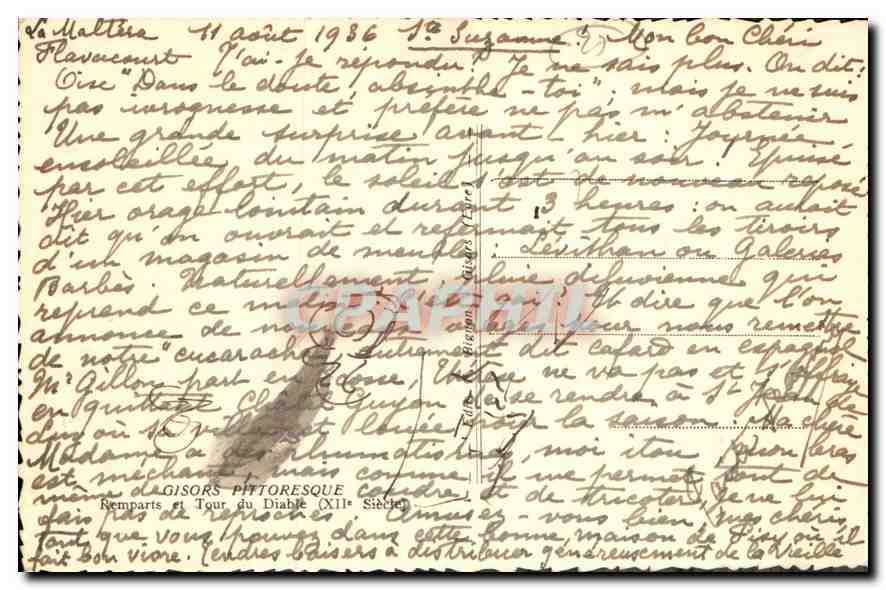 La Maltéra 11 août 1936 Ste Suzanne! Mon bon Chéri
Flavacourt T'ai-je répondu? Je ne sais plus. On dit:
Oise "Dans le doute, absinthe-toi": mais je ne suis
pas ivrognesse et préfère ne pas m'abstenir
Une grande surprise avant-hier: Journée
ensoleillée du matin jusqu'au soir! Epuisé
par cet effort, le soleil s'est de nouveau reposé
Hier orage lointain durant 3 heures: on aurait
dit qu'on ouvrait et refermait tous les tiroirs
d'un magasin de meubles: Lévithan ou Galeries
Barbès. Naturellement, pluie diluvienne qui
reprend ce matin. Et dire que l'on
annonce de nouveaux orages pour nous remettre
de notre "cucaracha" autrement dit cafard en espagnol
Mr Gillon part en, ne va pas et
en Guyon va se rendre à St Jean de
Luz où sa villa est louée pour la saison. Ma chère
Madame a des rhumatismes, moi itou, mon bras
est méchant, mais comme il me permet tout de
même de coudre et de tricoter, je ne lui
fais pas de reproches. Amusez-vous bien, mes chéris,
tant que vous pouvez dans cette bonne maison de où il
fait bon vivre. Tendres baisers à distribuer généreusement de la Vieille
GISORS PITTORESQUE
Remparts et Tour du Diable (XIIe Siècle)
Edit. Bignon, Gisors (Eure)
CPAPHIL